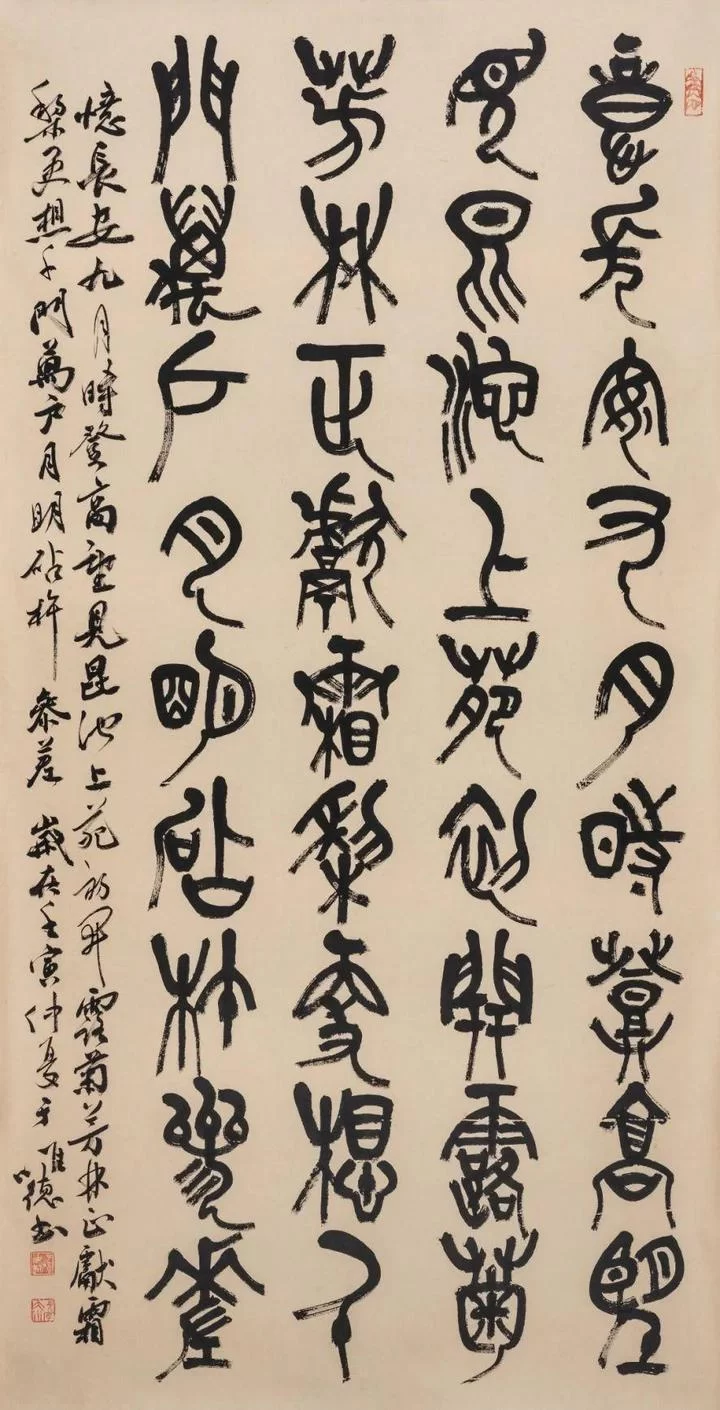 意長安九月時登高望
見昆池上苑初開露菊
芳林正獻霜梨更想千
門萬户月明砧杵參差
憶長安九月時登高望見昆池上苑初開露菊芳林正獻霜
梨更想千門萬户月明砧杵參差 歲在壬寅仲夏于唯德書